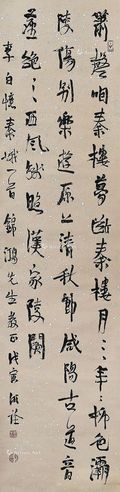 簫聲咽秦樓夢斷秦樓月〻〻年〻柳色灞
陵傷別樂遊原上清秋節咸陽古道音
塵絕〻〻西風殘照漢家陵闕
李白憶秦娥一首錦鴻先生教正戊寅